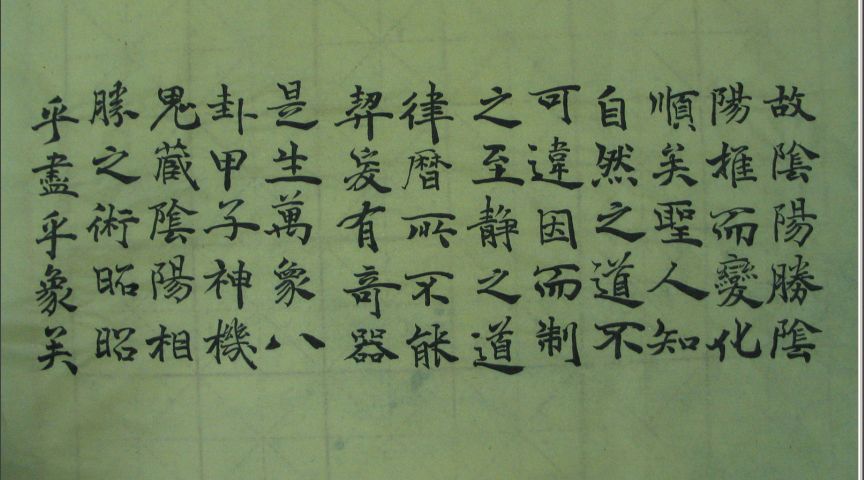 故陰陽勝陰
陽推而變化
順矣聖人知
自然之道不
可違因而制
之至静之道
律曆所不能
契爰有奇器
是生萬象八
卦甲子神機
鬼藏陰陽相
勝之術昭昭
乎盡乎象矣